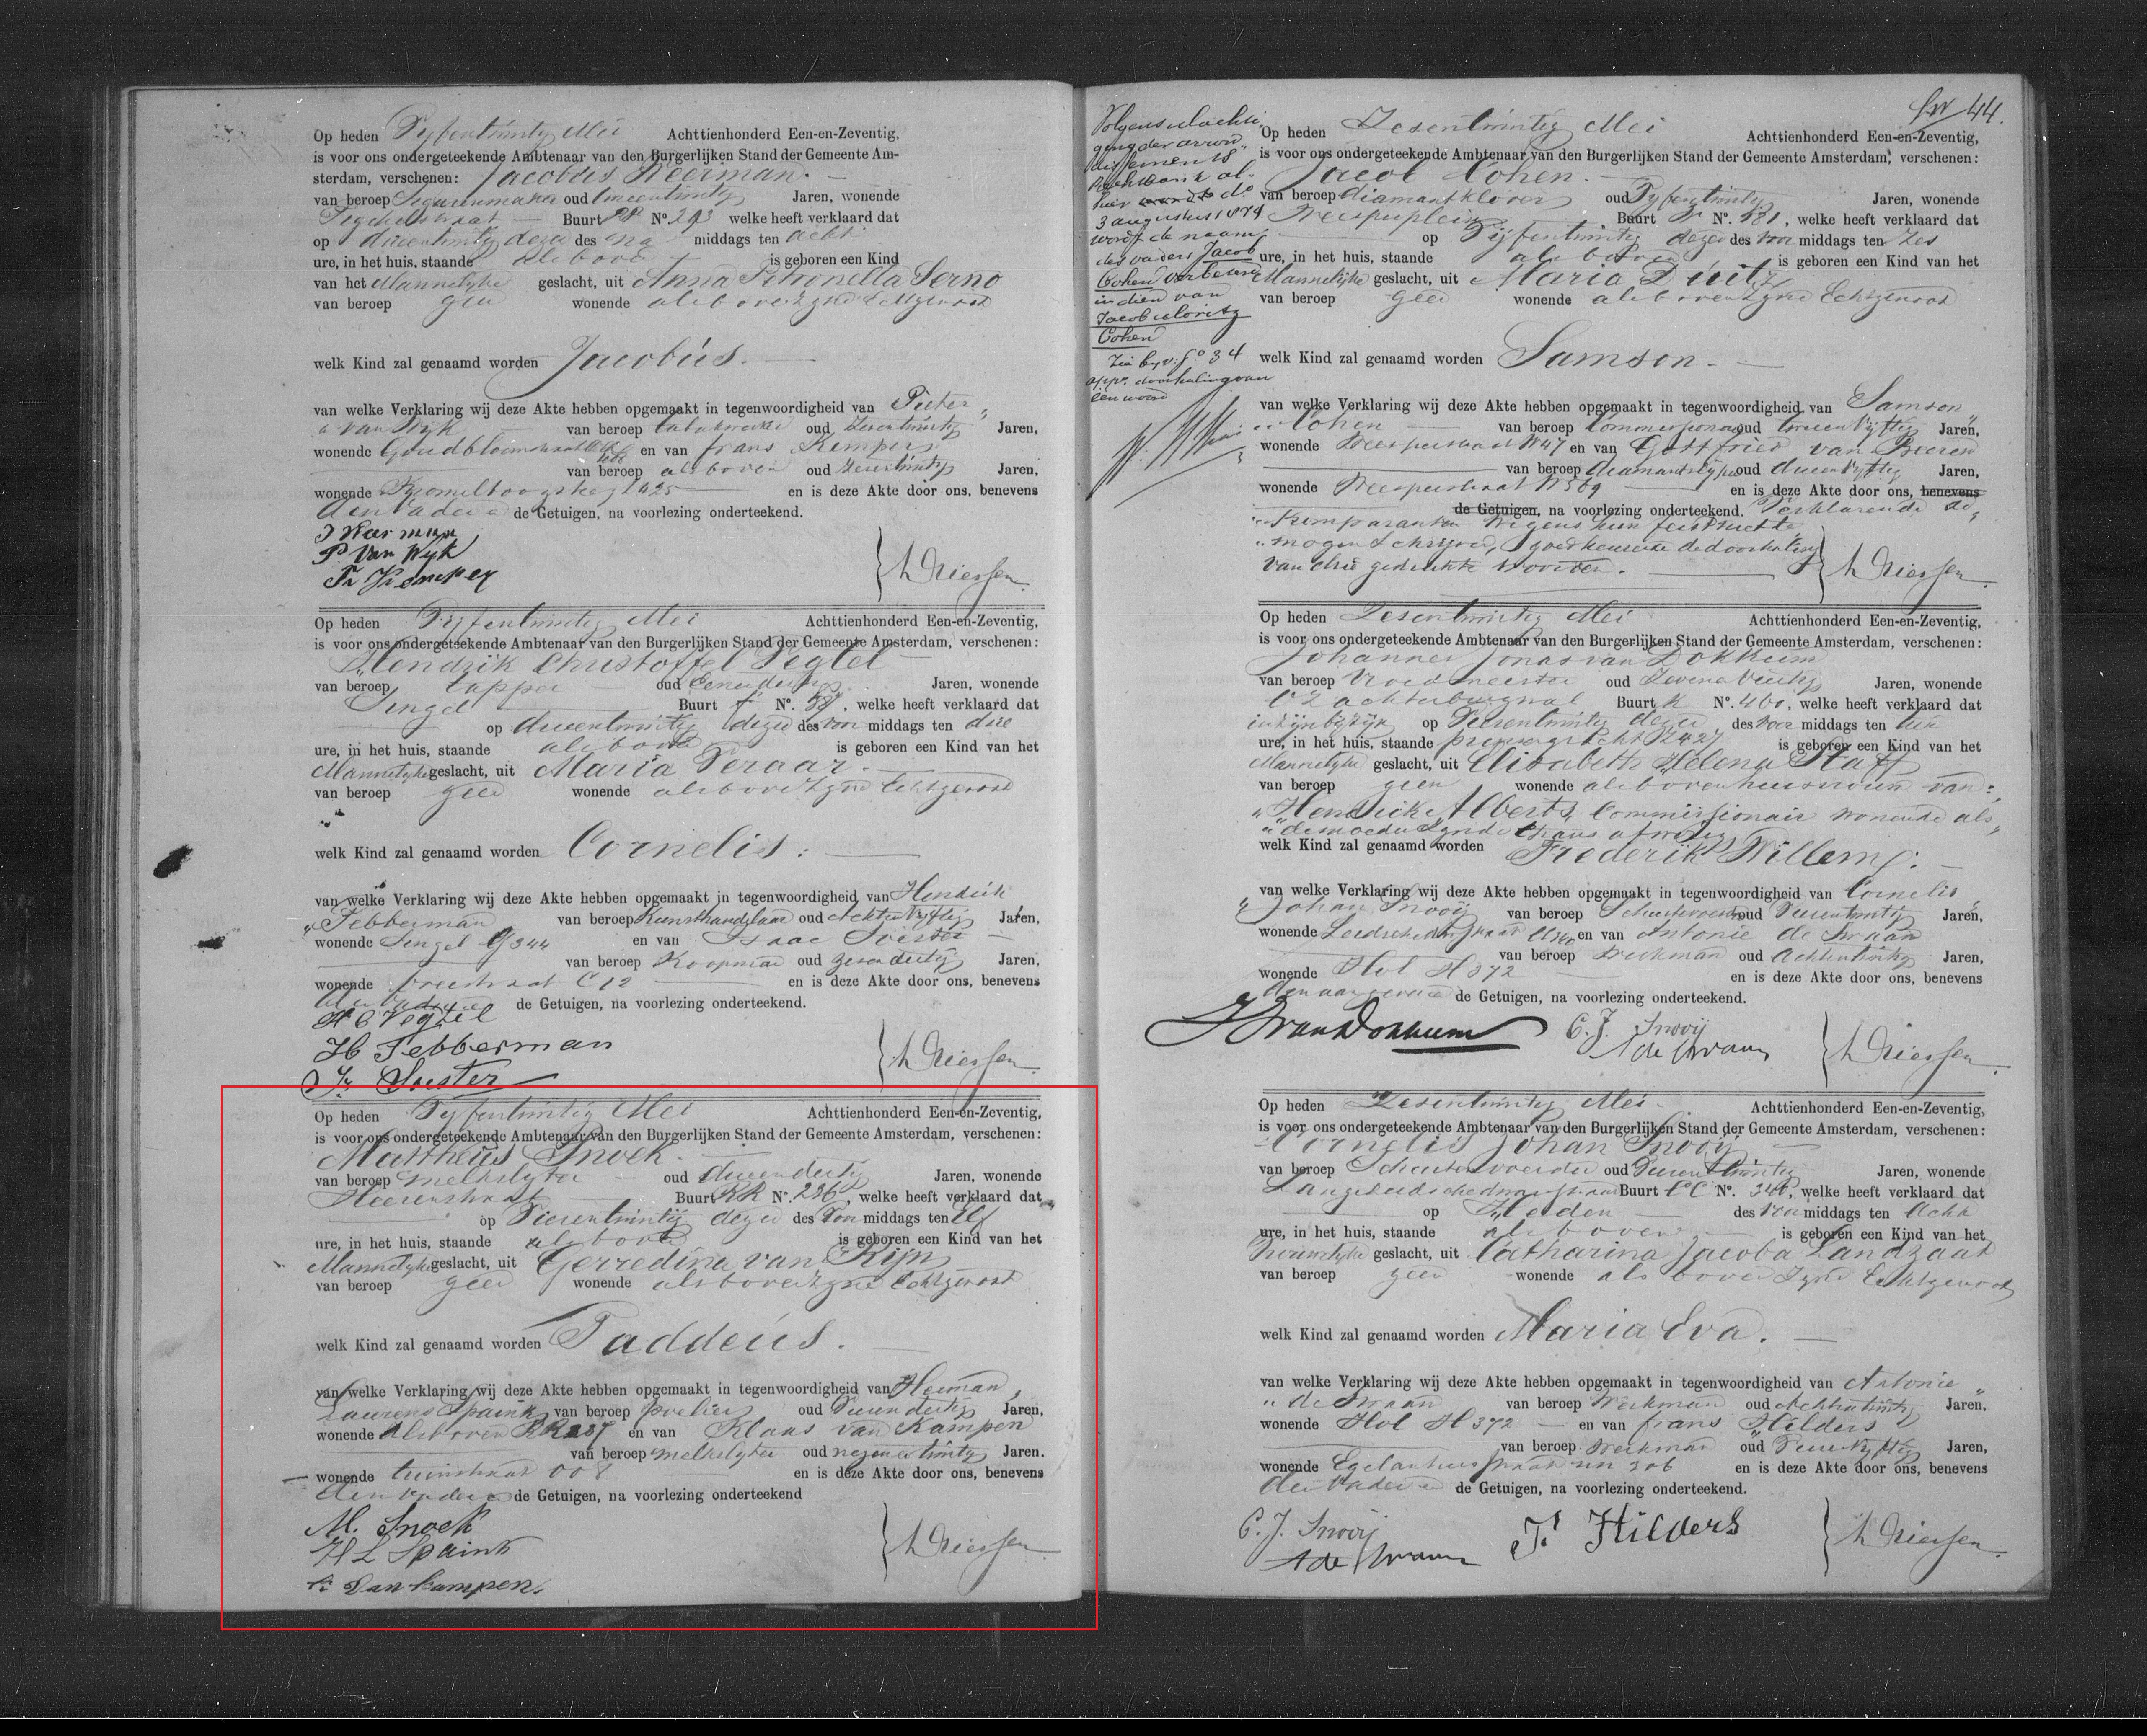 Op heden Vyfentwintig Mei Achttienhonderd Een-en-Zeventig,
is voor ons ondergeteekende Ambtenaar van den Burgerlijken Stand der Gemeente Am-
sterdam, verschenen: Jacobus Keerman.
van beroep Segarenmaker oud Tweeentwintig Jaren, wonende
Buurt No. 293 welke heeft verklaard dat
op drieentwintig dezer des na middags ten acht
ure, in het huis, staande als boven is geboren een Kind
van het Mannelyke geslacht, uit Anna Petronella Serno
van beroep geen wonende als boven Zyne Echtgenoot
welk Kind zal genaamd worden Jacobus.
van welke Verklaring wij deze Akte hebben opgemaakt in tegenwoordigheid van Pieter
van Wyk van beroep oud Zesentwintig Jaren,
wonende Goudbloemstraat en van frans Kemper
van beroep als boven oud Jaren,
wonende en is deze Akte door ons, benevens
den Vader en de Getuigen, na voorlezing onderteekend.
J Keerman
P. Van Wyk
Fr Kemper
Op heden Vyfentwintig Mei Achttienhonderd Een-en-Zeventig,
is voor ons ondergeteekende Ambtenaar van den Burgerlijken Stand der Gemeente Amsterdam, verschenen:
Hendrik Christoffel Vegtel
van beroep tapper oud Eenendertig Jaren, wonende
Singel Buurt No. 58, welke heeft verklaard dat
op drieentwintig dezer des voor middags ten drie
ure, in het huis, staande als boven is geboren een Kind van het
Mannelyke geslacht, uit Maria Veraar.
van beroep geen wonende als boven Zyne Echtgenoot
welk Kind zal genaamd worden Cornelis.
van welke Verklaring wij deze Akte hebben opgemaakt in tegenwoordigheid van Hendrik
Febberman van beroep Kunsthandelaar oud Achtenvyftig Jaren,
wonende Singel 344 en van Isaac Soester
van beroep Koopman oud Zesendertig Jaren,
wonende breestraat C 12 en is deze Akte door ons, benevens
den Vader en de Getuigen, na voorlezing onderteekend.
H C Vegtel
H Febberman
Is. Soester
Op heden Vyfentwintig Mei Achttienhonderd Een-en-Zeventig,
is voor ons ondergeteekende Ambtenaar van den Burgerlijken Stand der Gemeente Amsterdam, verschenen:
Mattheus Snoek.
van beroep melkslyter oud drieendertig Jaren, wonende
Heerenstraat Buurt RR No. 236, welke heeft verklaard dat
op Vierentwintig dezer des Voor middags ten Elf
ure, in het huis, staande als boven is geboren een Kind van het
Mannelyke geslacht, uit Gerredina van Rijn
van beroep geen wonende als boven Zyne Echtgenoot
welk Kind zal genaamd worden Taddeus.
van welke Verklaring wij deze Akte hebben opgemaakt in tegenwoordigheid van Herman
Laurens Spaink van beroep poelier oud Vierendertig Jaren,
wonende als boven RR 237 en van Klaas van Kampen
van beroep melkslyter oud negenentwintig Jaren.
wonende tuinstraat 008 en is deze Akte door ons, benevens
den Vader en de Getuigen, na voorlezing onderteekend
M. Snoek
H L Spaink
K. van kampen.
44.
Volgens
3 augustus 1874
wordt de naam
des vaders Jacob
Cohen verbeterd
in dien van
Jacob Moritz
Cohen
Op heden Zesentwintig Mei Achttienhonderd Een-en-Zeventig,
is voor ons ondergeteekende Ambtenaar van den Burgerlijken Stand der Gemeente Amsterdam, verschenen:
Jacob Cohen.
van beroep diamantklover oud Vyfentwintig Jaren, wonende
Weesperplein Buurt No. 381, welke heeft verklaard dat
op Vyfentwintig dezer des voor middags ten Zes
ure, in het huis, staande als boven is geboren een Kind van het
Mannelyke geslacht, uit Maria Duitz
van beroep geen wonende als boven Zyne Echtgenoot
welk Kind zal genaamd worden Samson.
van welke Verklaring wij deze Akte hebben opgemaakt in tegenwoordigheid van Samson
Cohen van beroep Commissionair oud Jaren,
wonende Weesperstraat W 47 en van Gottfried van Beeren
van beroep diamantslyper oud drieenvyftig Jaren,
wonende Weesperstraat W 569 en is deze Akte door ons, benevens
de Getuigen, na voorlezing onderteekend. Verklarende de
Komparanten wegens hun feest niet te
mogen Schryven, goedkeurende de doorhaling
van drie gedrukte woorden.
Op heden Zesentwintig Mei Achttienhonderd Een-en-Zeventig,
is voor ons ondergeteekende Ambtenaar van den Burgerlijken Stand der Gemeente Amsterdam, verschenen:
Johannes Jonas van Dokkum
van beroep Vroedmeester oud Jaren, wonende
O Z achterburgwal Buurt K No. 460, welke heeft verklaard dat
in zyn byzyn op Vierentwintig dezer des voor middags ten tien
ure, in het huis, staande prinsengracht 427 is geboren een Kind van het
Mannelyke geslacht, uit Elisabeth Helena Staff
van beroep geen wonende als boven huisvrouw van
Hendrik Alberts, Commissionair wonende als
de moeder Zynde thans afwezig
welk Kind zal genaamd worden Frederik Willem.
van welke Verklaring wij deze Akte hebben opgemaakt in tegenwoordigheid van Cornelis
Johan Snooij van beroep oud Vierentwintig Jaren,
wonende en van Antonie de Swaan
van beroep Werkman oud Achtentwintig Jaren,
wonende Hol H 372 en is deze Akte door ons, benevens
den aangever en de Getuigen, na voorlezing onderteekend.
J J van Dokkum
C. J. Snooij
A de Swaan
Op heden Zesentwintig Mei Achttienhonderd Een-en-Zeventig,
is voor ons ondergeteekende Ambtenaar van den Burgerlijken Stand der Gemeente Amsterdam, verschenen:
Cornelis Johan Snooij
van beroep oud Vierentwintig Jaren, wonende
Buurt CC No. 340, welke heeft verklaard dat
op Heden des voor middags ten Acht
ure, in het huis, staande als boven is geboren een Kind van het
Vrouwelyke geslacht, uit Catharina Jacoba Landzaat
van beroep geen wonende als boven Zyne Echtgenoot
welk Kind zal genaamd worden Maria Eva.
van welke Verklaring wij deze Akte hebben opgemaakt in tegenwoordigheid van Antonie
de Swaan van beroep Werkman oud Achtentwintig Jaren,
wonende Hol H 372 en van frans Hilders
van beroep Werkman oud Jaren,
wonende Egelantierstraat 306 en is deze Akte door ons, benevens
den Vader en de Getuigen, na voorlezing onderteekend.
C. J. Snooij
A de Swaan
F. Hilders